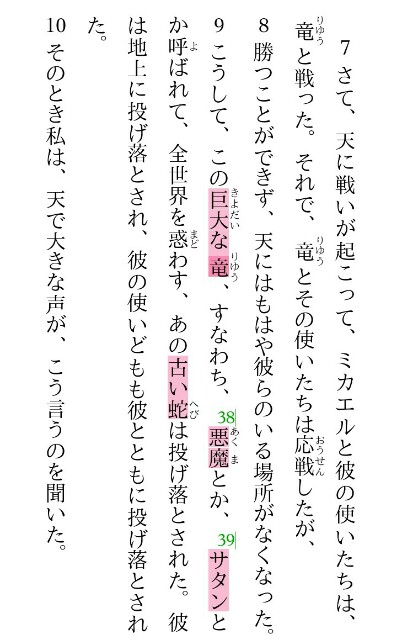 7 さて、天に戦いが起こって、ミカエルと彼の使いたちは、
竜と戦った。それで、竜とその使いたちは応戦したが、
8 勝つことができず、天にはもはや彼らのいる場所がなくなった。
9 こうして、この巨大な竜、すなわち、38悪魔とか、39サタンと
か呼ばれて、全世界を惑わす、あの古い蛇は投げ落とされた。彼
は地上に投げ落とされ、彼の使いどもも彼とともに投げ落とされ
た。
10 そのとき私は、天で大きな声が、こう言うのを聞いた。